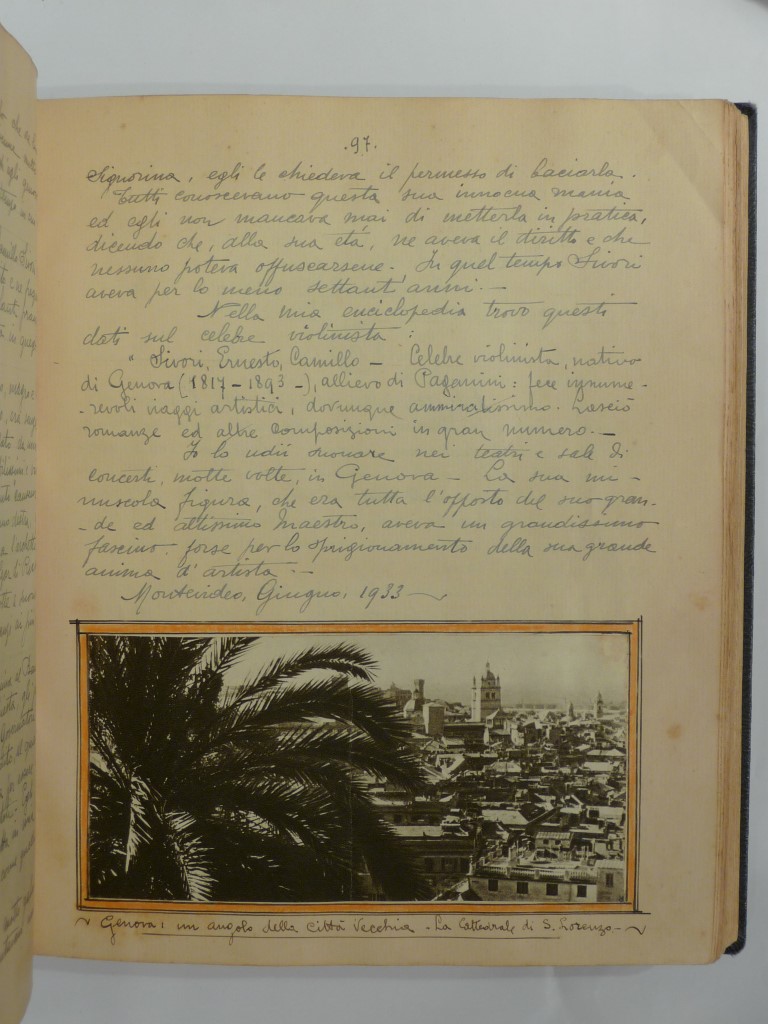 .97.
Signorina, egli le chiedeva il permesso di baciarla.
Tutti conoscevano questa sua innocua mania
ed egli non mancava mai di metterla in pratica,
dicendo che, alla sua etá, ne aveva il diritto e che
nessuno poteva offuscarsene. In quel tempo Sivori
aveva per lo meno settant'anni.—
Nella mia enciclopedia trovo questi
dati sul celebre violinista:
" Sivori, Ernesto, Camillo — Celebre violinista, nativo
di Genova (1817-1893-), allievo di Paganini: fece innume-
-revoli viaggi artistici, dovunque ammiratissimo. Lasció
romanze ed altre composizioni in gran numero.—
Io lo udii suonare nei teatri e sale di
concerti, molte volte, in Genova — La sua mi-
nuscola figura, che era tutta l'opposto del suo gran-
-de ed altissimo Maestro, aveva un grandissimo
fascino forse per lo sprigionamento della sua grande
anima d'artista.—
Montevideo, Giugno, 1933
Genova: un angolo della Cittá Vecchia - La Cattedrale di S. Lorenzo-